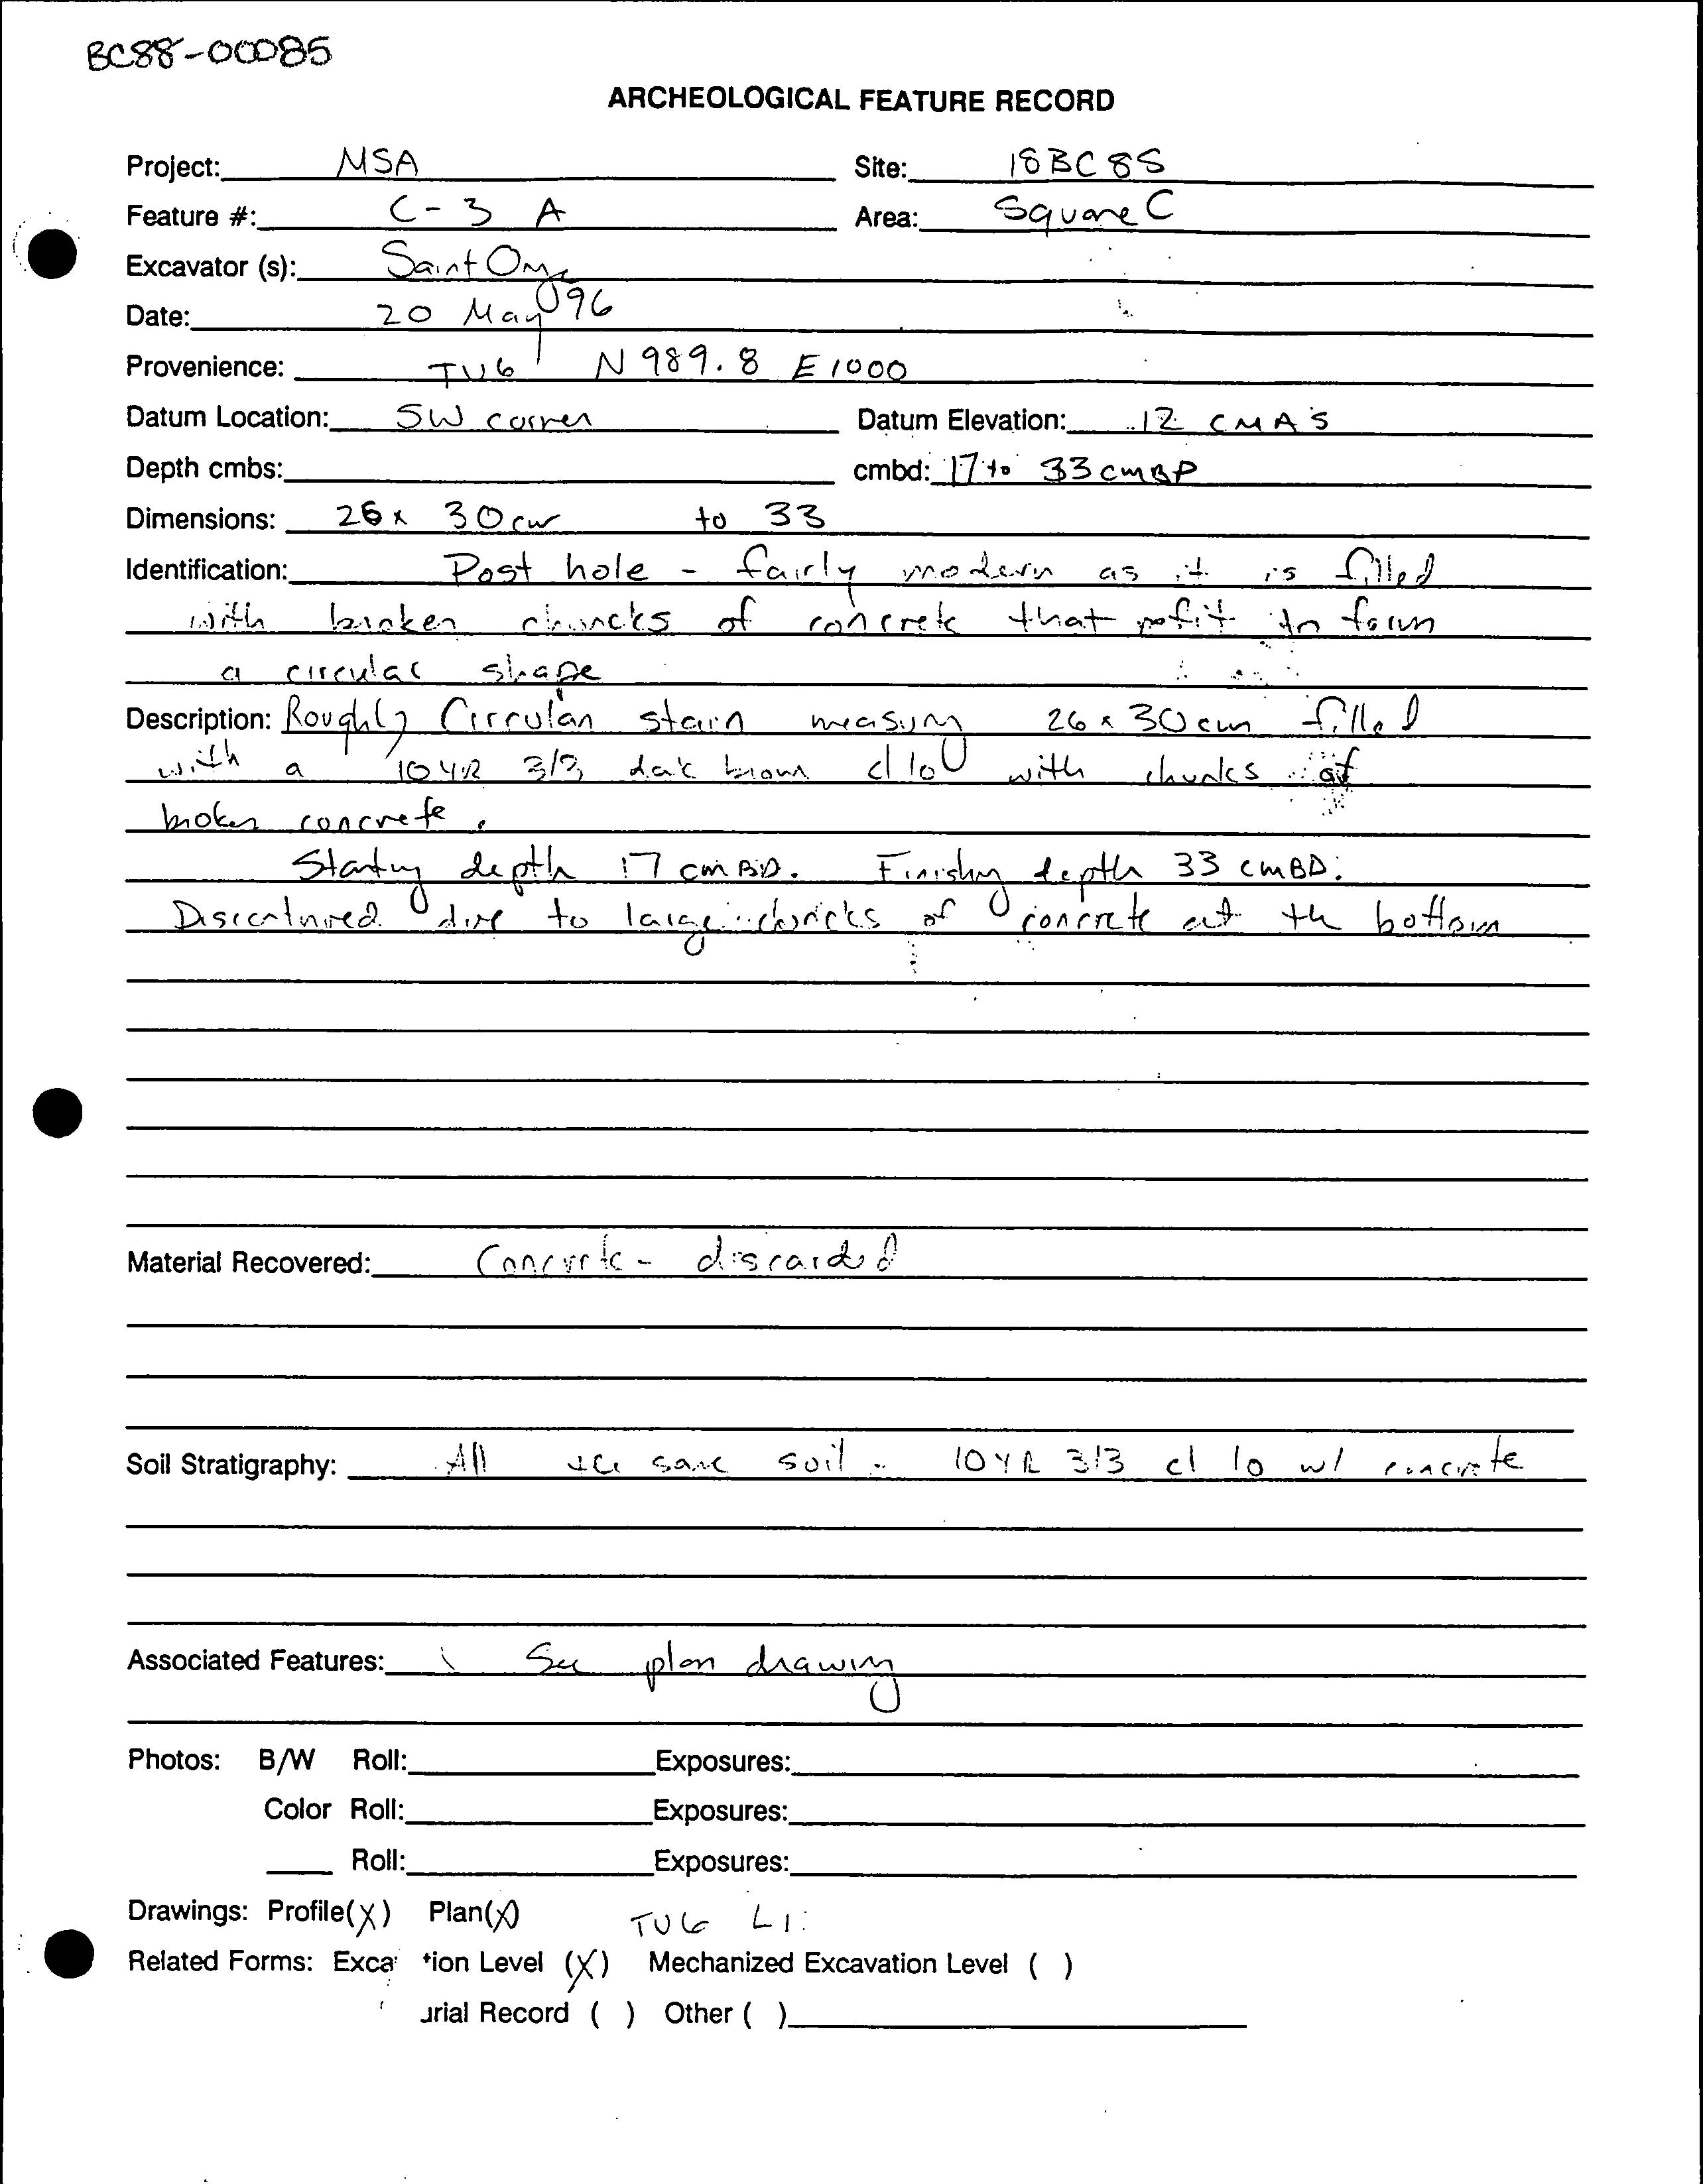 BC88-00085
ARCHEOLOGICAL FEATURE RECORD
Project: MSA Site: 18BC88
Feature #: C-3 A Area: Square C
Excavator (s): Saint Onge
Date: 20 May 96
Provenience: TU6 N 989.8 E 1000
Datum Location: SW corner Datum Elevation: 12 CMAS
Depth cmbs: cmbd: 17 to 33 cmBD
Dimensions: 26 x 30 cm to 33
Identification: Post hole - fairly modern as it is filled
with broken chuncks of concrete that refit to form
a circular shape
Description: Roughly Circular stain measuring 26 x 30 cm filled
with a 10YR 3/3 dark brown cl lo with chunks of
broken concrete.
Starting depth 17 cmBD. Finishing depth 33 cmBD.
due to large chuncks of concrete at the bottom
Material Recovered: Concrete - discarded
Soil Stratigraphy: All same soil - 10YR 3/3 cl lo w/ concrete
Associated Features: See plan drawing
Photos: B/W Roll: Exposures:
Color Roll: Exposures:
Roll: Exposures:
Drawings: Profile(X) Plan(X) TU6 L1
Related Forms: Exca tion Level (X) Mechanized Excavation Level ( )
urial Record ( ) Other ( )